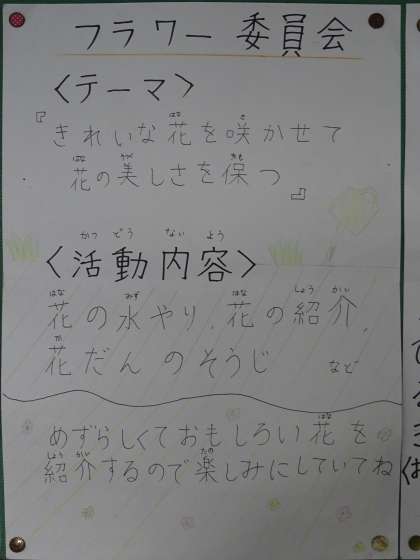 フラワー委員会
〈テーマ〉
『きれいな花を咲かせて
花の美しさを保つ』
〈活動内容〉
花の水やり、花の紹介、
花だんのそうじ など
めずらしくておもしろい花を
紹介するので楽しみにしていてね